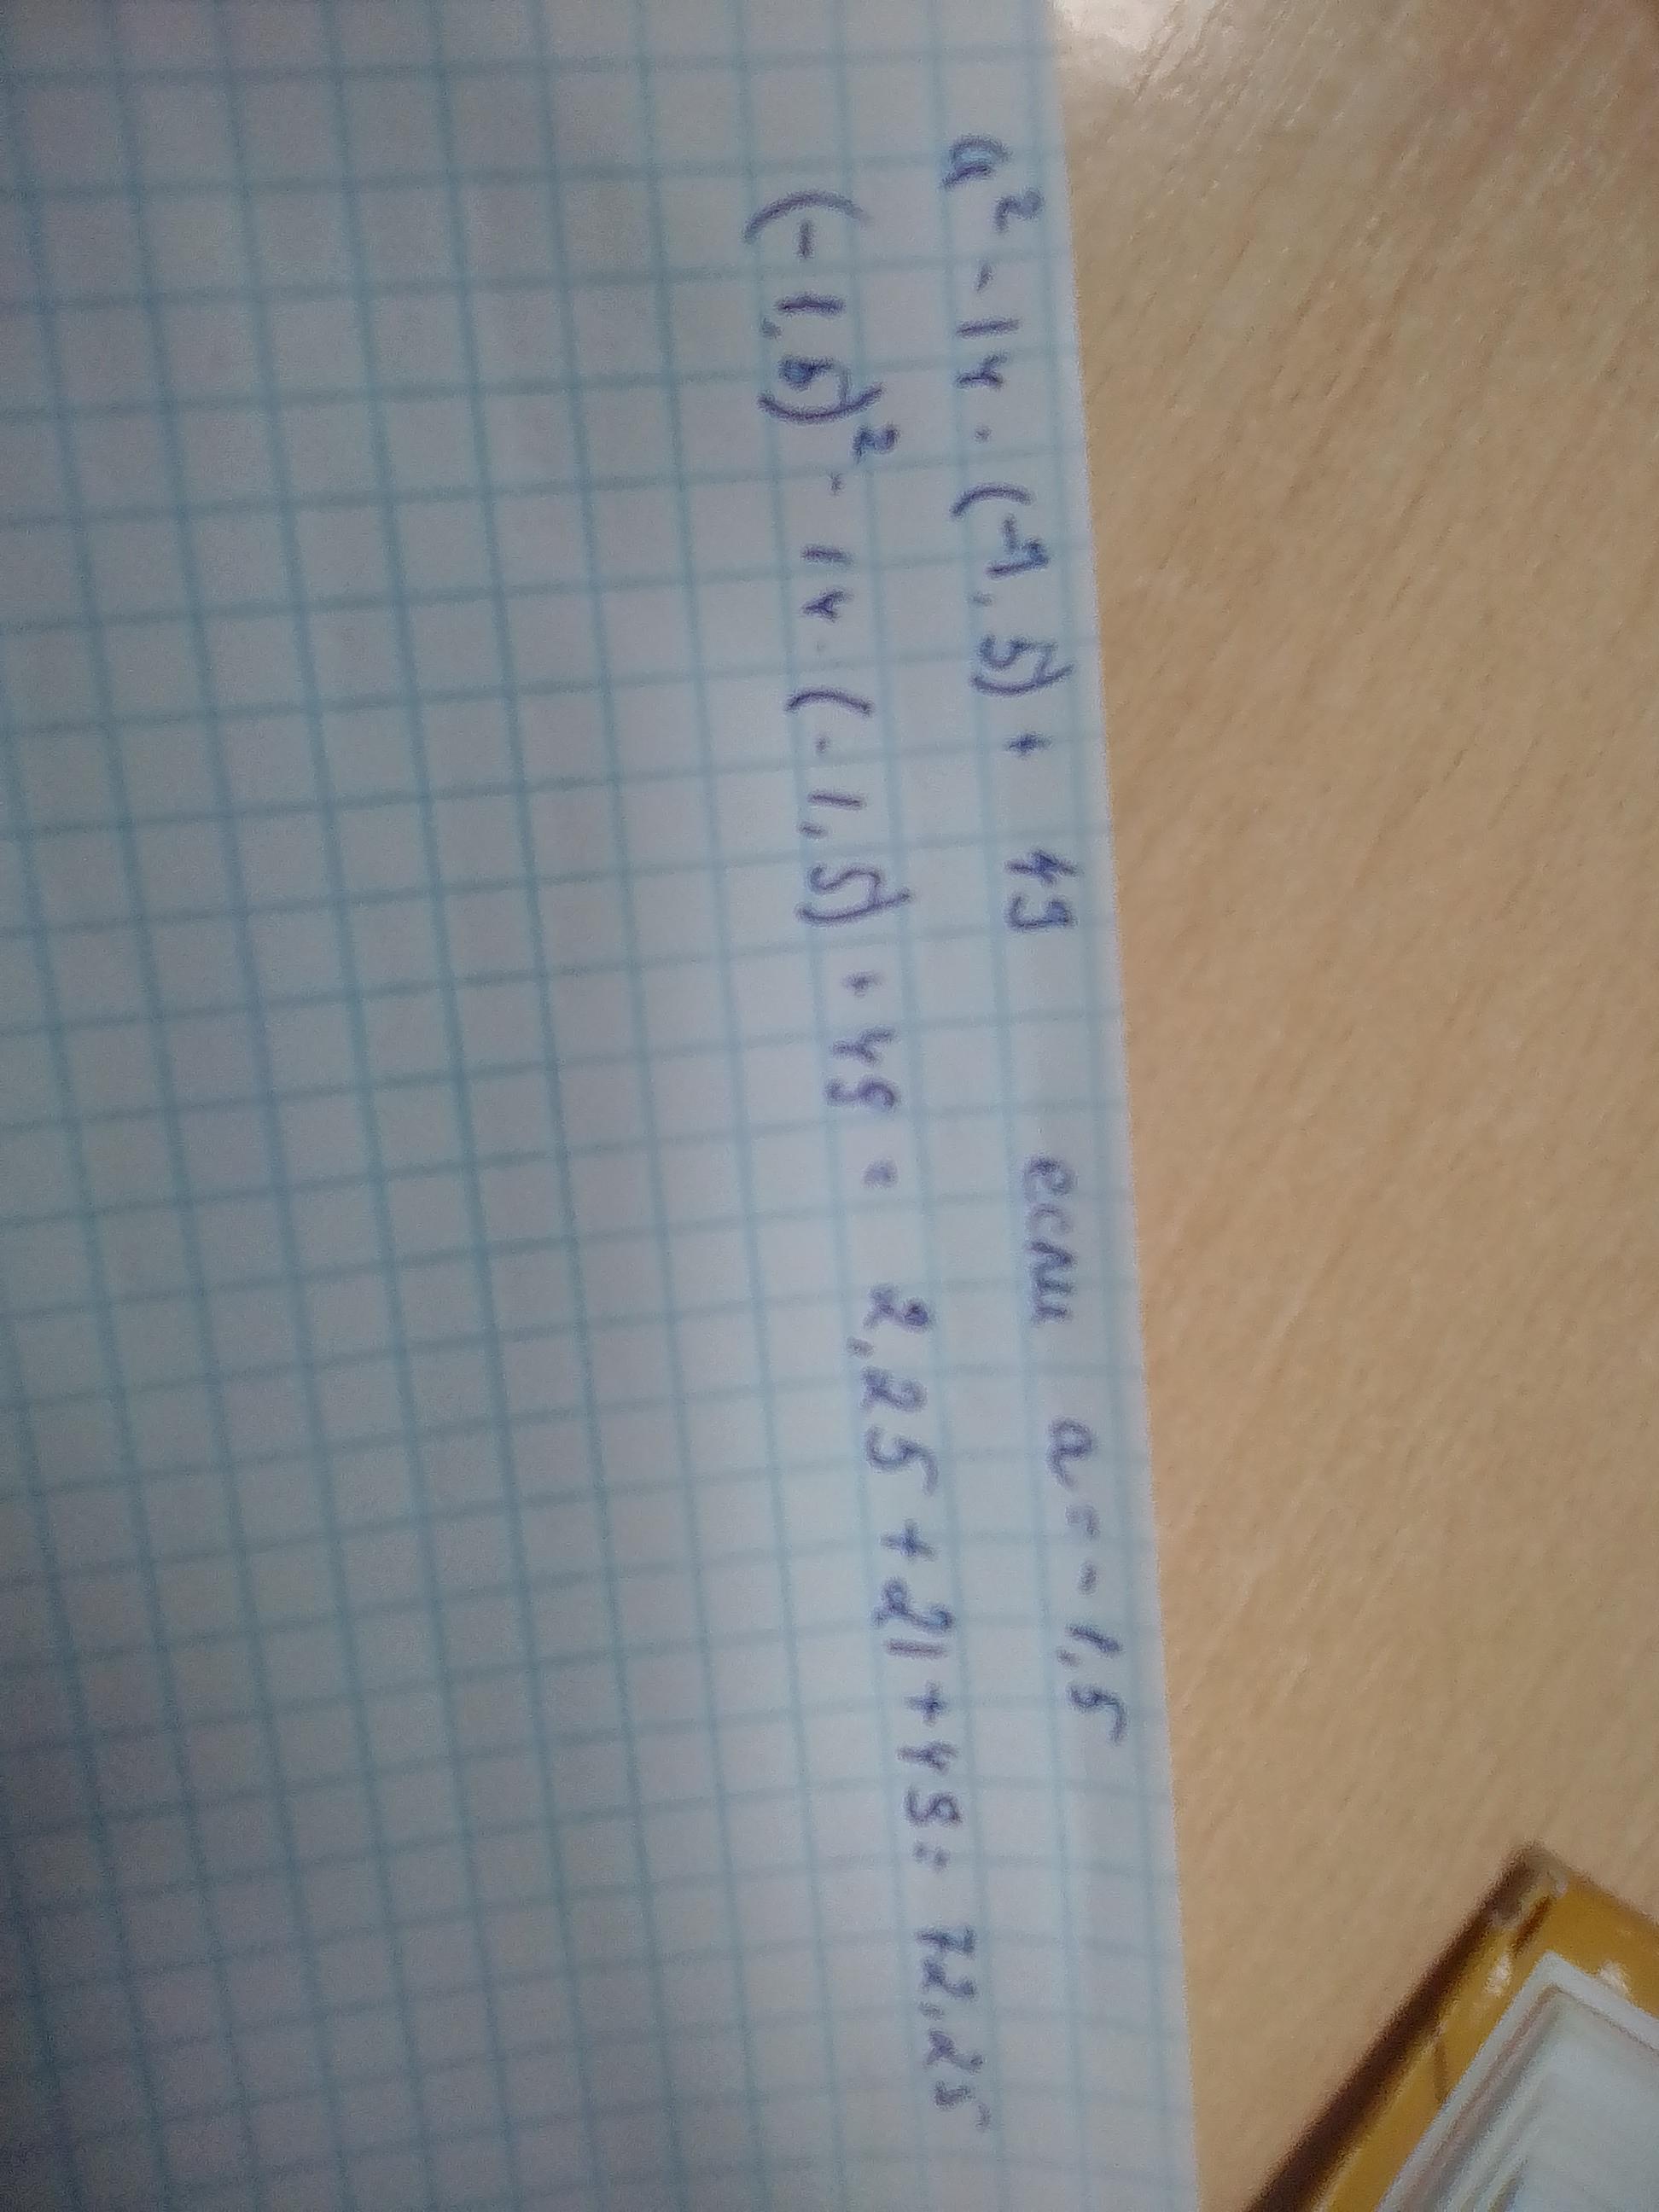 a² - 14 · (-1,5) + 49 если a = - 1,5
(-1,5)² - 14 · (-1,5) + 49 = 2,25 + 21 + 49 = 72,25